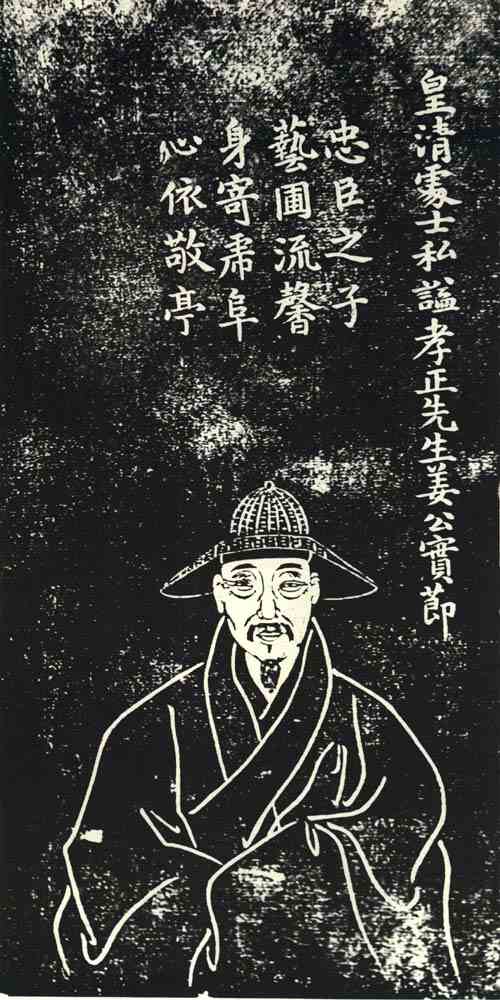 皇清處士私謚孝正先生姜公實莭
忠臣之子
藝圃流馨
身寄虎阜
心依敬亭